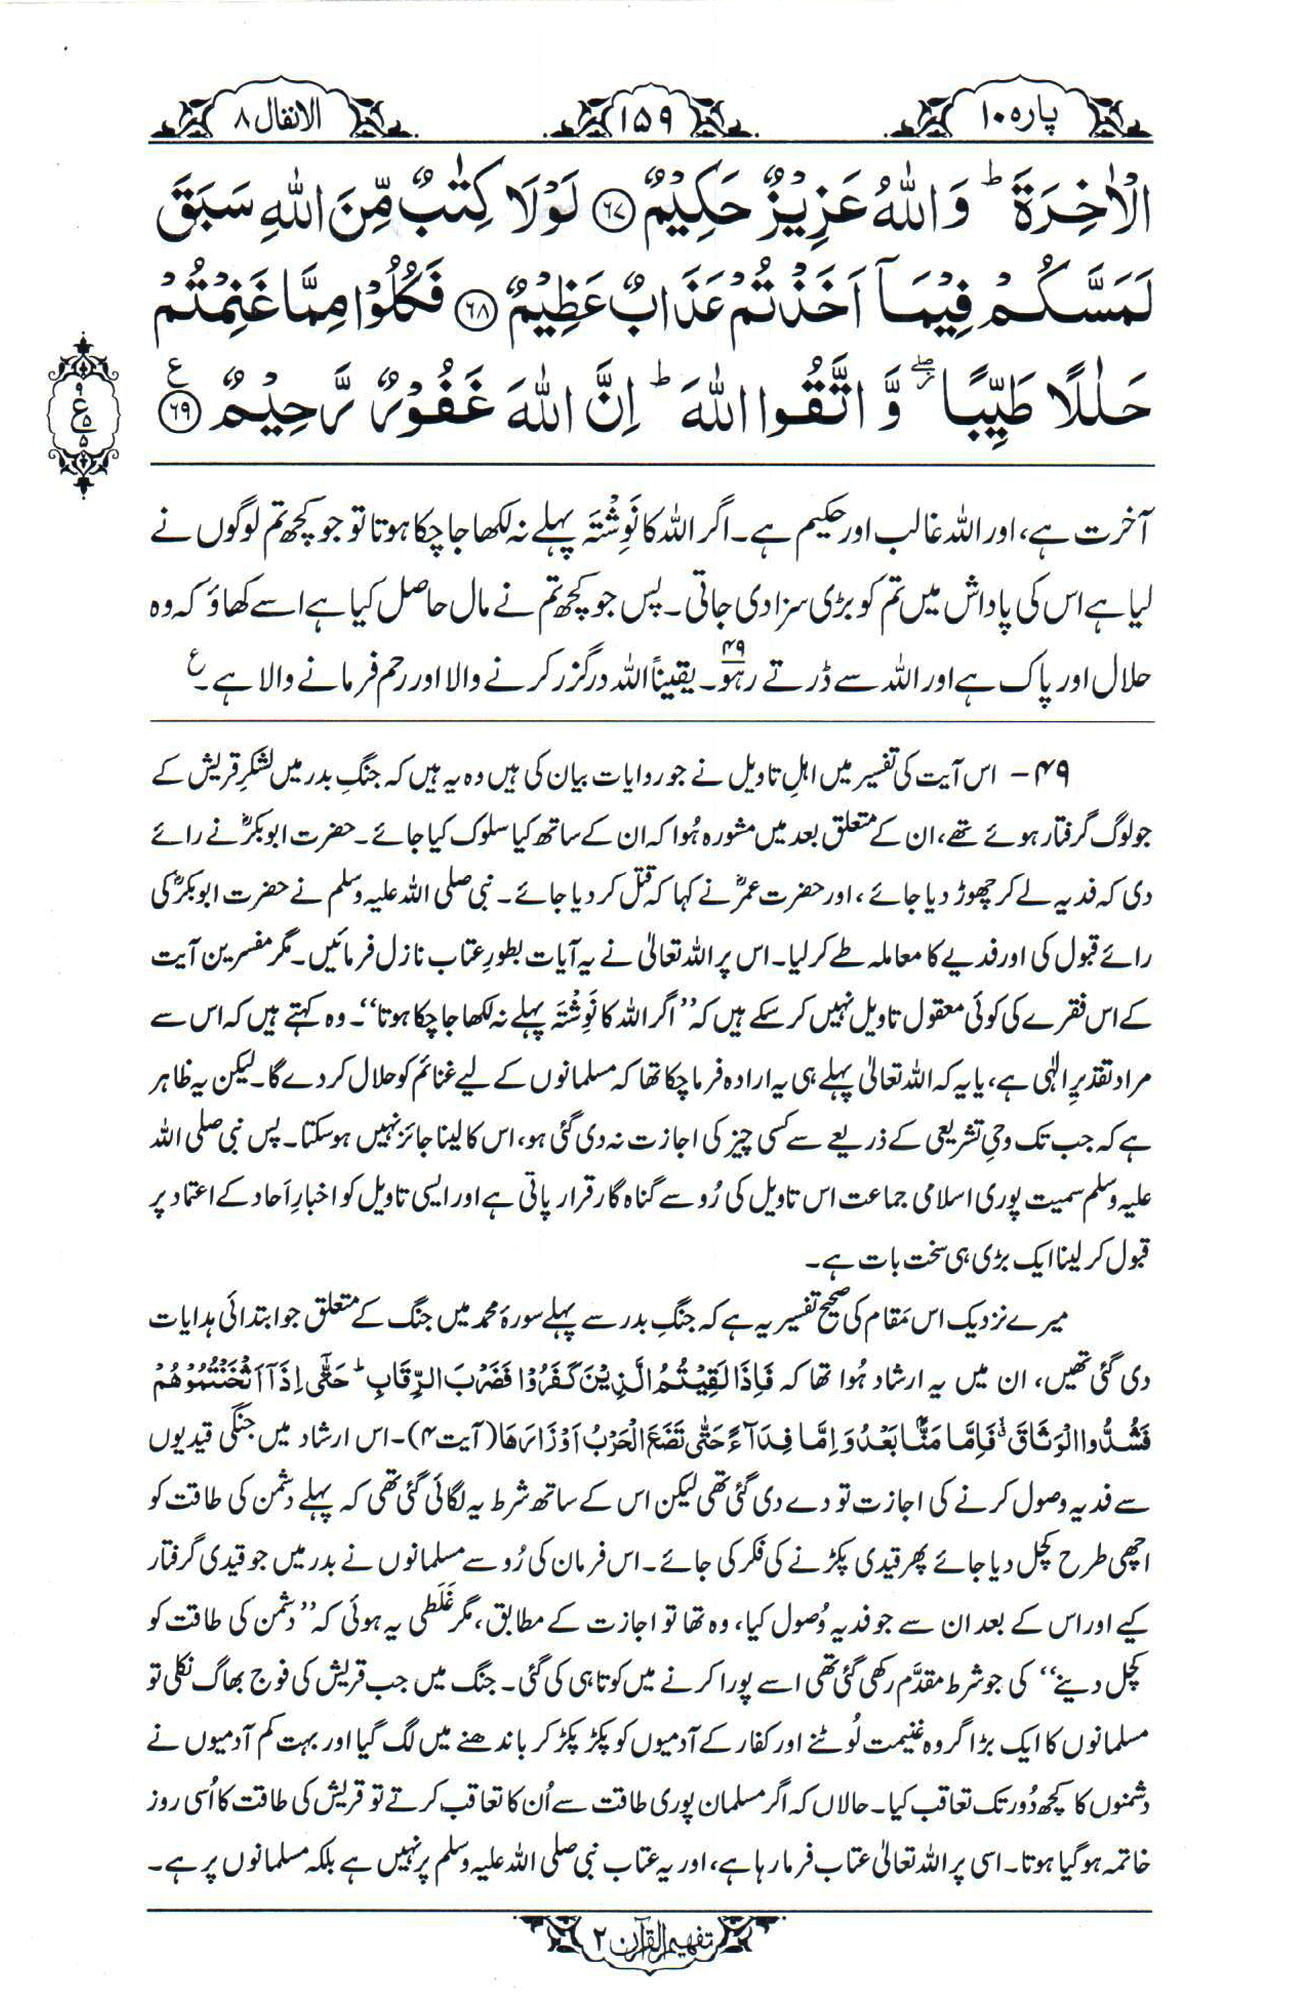 پارہ ۱۰
۱۵۹
الانفال ۸
الْاٰخِرَةَ ؕ وَاللّٰهُ عَزِيْزٌ حَكِيْمٌ ﴿۶۷﴾ لَوْلَا كِتٰبٌ مِّنَ اللّٰهِ سَبَقَ
لَمَسَّكُمْ فِيْمَاۤ اَخَذْتُمْ عَذَابٌ عَظِيْمٌ ﴿۶۸﴾ فَكُلُوْا مِمَّا غَنِمْتُمْ
حَلٰلًا طَيِّبًا ۖ وَّ اتَّقُوا اللّٰهَ ؕ اِنَّ اللّٰهَ غَفُوْرٌ رَّحِيْمٌ ﴿۶۹﴾ ع
آخرت ہے، اور اللہ غالب اور حکیم ہے۔ اگر اللہ کا نَوِشْتَہ پہلے نہ لکھا جا چکا ہوتا تو جو کچھ تم لوگوں نے
لیا ہے اس کی پاداش میں تم کو بڑی سزا دی جاتی۔ پس جو کچھ تم نے مال حاصل کیا ہے اسے کھاؤ کہ وہ
حلال اور پاک ہے اور اللہ سے ڈرتے رہو۔ ۴۹ یقیناً اللہ درگزر کرنے والا اور رحم فرمانے والا ہے۔ ع
۴۹ – اس آیت کی تفسیر میں اہلِ تاویل نے جو روایات بیان کی ہیں وہ یہ ہیں کہ جنگِ بدر میں لشکرِ قریش کے
جو لوگ گرفتار ہوئے تھے، ان کے متعلق بعد میں مشورہ ہُوا کہ ان کے ساتھ کیا سلوک کیا جائے۔ حضرت ابوبکرؓ نے رائے
دی کہ فدیہ لے کر چھوڑ دیا جائے، اور حضرت عمرؓ نے کہا کہ قتل کر دیا جائے۔ نبی صلی اللہ علیہ وسلم نے حضرت ابوبکرؓ کی
رائے قبول کی اور فدیے کا معاملہ طے کر لیا۔ اس پر اللہ تعالیٰ نے یہ آیات بطورِ عتاب نازل فرمائیں۔ مگر مفسرین آیت
کے اس فقرے کی کوئی معقول تاویل نہیں کر سکے ہیں کہ ’’اگر اللہ کا نَوِشْتَہ پہلے نہ لکھا جا چکا ہوتا‘‘۔ وہ کہتے ہیں کہ اس سے
مراد تقدیرِ الٰہی ہے، یا یہ کہ اللہ تعالیٰ پہلے ہی یہ ارادہ فرما چکا تھا کہ مسلمانوں کے لیے غنائم کو حلال کر دے گا۔ لیکن یہ ظاہر
ہے کہ جب تک وحیِ تشریعی کے ذریعے سے کسی چیز کی اجازت نہ دی گئی ہو، اس کا لینا جائز نہیں ہو سکتا۔ پس نبی صلی اللہ
علیہ وسلم سمیت پوری اسلامی جماعت اس تاویل کی رُو سے گناہ گار قرار پاتی ہے اور ایسی تاویل کو اخبارِ آحاد کے اعتماد پر
قبول کر لینا ایک بڑی ہی سخت بات ہے۔
میرے نزدیک اس مَقام کی صحیح تفسیر یہ ہے کہ جنگِ بدر سے پہلے سورۂ محمد میں جنگ کے متعلق جو ابتدائی ہدایات
دی گئی تھیں، ان میں یہ ارشاد ہُوا تھا کہ فَاِذَا لَقِيْتُمُ الَّذِيْنَ كَفَرُوْا فَضَرْبَ الرِّقَابِ ؕ حَتّٰۤى اِذَاۤ اَثْخَنْتُمُوْهُمْ
فَشُدُّوا الْوَثَاقَ ۙ فَاِمَّا مَنًّۢا بَعْدُ وَ اِمَّا فِدَآءً حَتّٰى تَضَعَ الْحَرْبُ اَوْزَارَهَا (آیت ۴)۔ اس ارشاد میں جنگی قیدیوں
سے فدیہ وصول کرنے کی اجازت تو دے دی گئی تھی لیکن اس کے ساتھ شرط یہ لگائی گئی تھی کہ پہلے دشمن کی طاقت کو
اچھی طرح کچل دیا جائے پھر قیدی پکڑنے کی فکر کی جائے۔ اس فرمان کی رُو سے مسلمانوں نے بدر میں جو قیدی گرفتار
کیے اور اس کے بعد ان سے جو فدیہ وُصول کیا، وہ تھا تو اجازت کے مطابق، مگر غَلَطی یہ ہوئی کہ ’’دشمن کی طاقت کو
کچل دینے‘‘ کی جو شرط مقدَّم رکھی گئی تھی اسے پورا کرنے میں کوتاہی کی گئی۔ جنگ میں جب قریش کی فوج بھاگ نکلی تو
مسلمانوں کا ایک بڑا گروہ غنیمت لُوٹنے اور کفار کے آدمیوں کو پکڑ پکڑ کر باندھنے میں لگ گیا اور بہت کم آدمیوں نے
دشمنوں کا کچھ دُور تک تعاقب کیا۔ حالاں کہ اگر مسلمان پوری طاقت سے اُن کا تعاقب کرتے تو قریش کی طاقت کا اُسی روز
خاتمہ ہو گیا ہوتا۔ اسی پر اللہ تعالیٰ عتاب فرما رہا ہے، اور یہ عتاب نبی صلی اللہ علیہ وسلم پر نہیں ہے بلکہ مسلمانوں پر ہے۔
تفہیم القرآن ۲